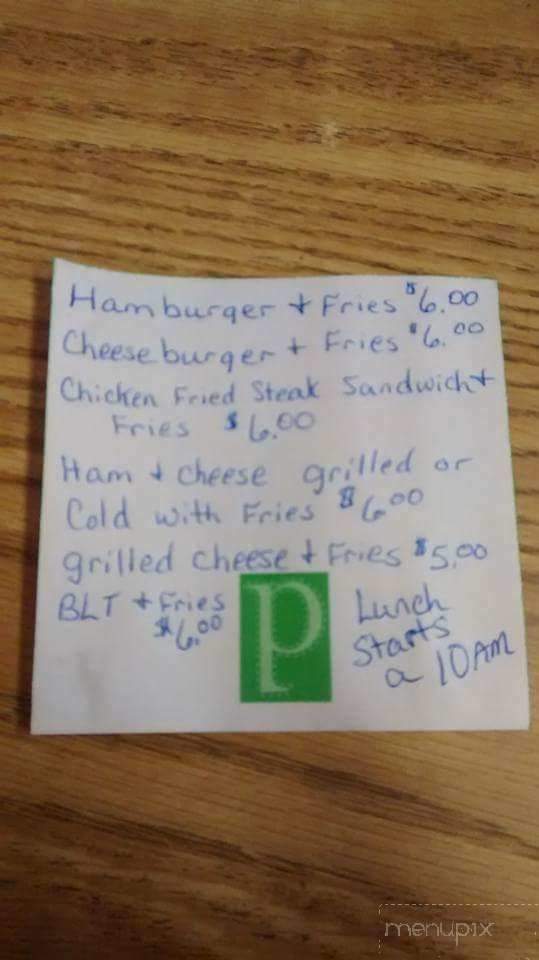 Hamburger + Fries $6.00
Cheeseburger + Fries $6.00
Chicken Fried Steak Sandwich +
Fries $6.00
Ham + cheese grilled or
Cold with Fries $6.00
grilled cheese + Fries $5.00
BLT + Fries
$6.00
p
Lunch
Starts
a 10AM
menupix